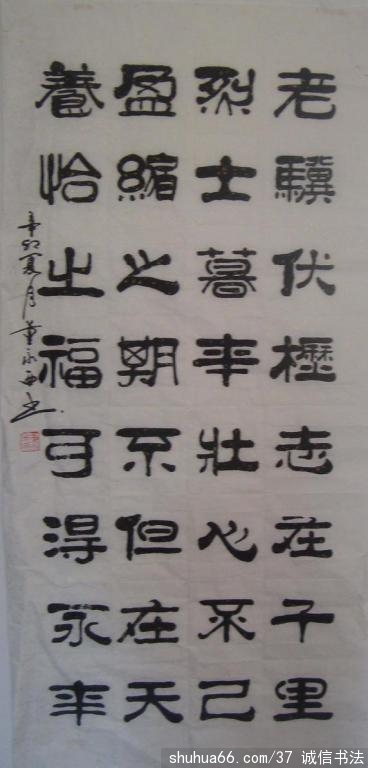 老驥伏櫪志在千里
烈士暮年壯心不已
盈縮之期不但在天
養怡之福可得永年
辛卯夏月董永西书
shuhua66.com/37 诚信书法